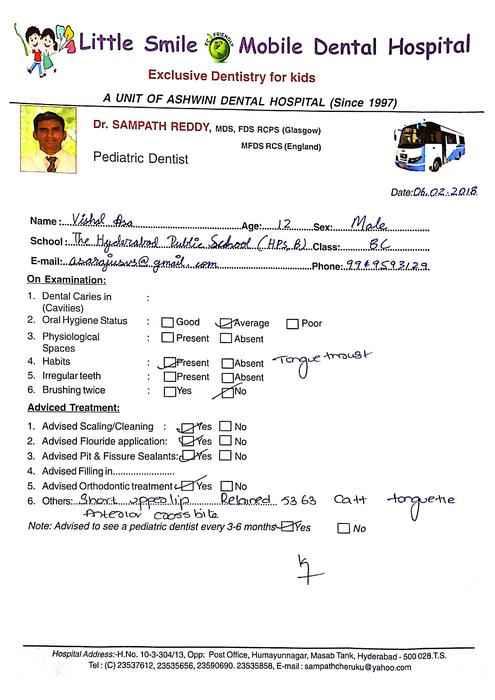 Little Smile Mobile Dental Hospital
Exclusive Dentistry for kids
A UNIT OF ASHWINI DENTAL HOSPITAL (Since 1997)
Dr. SAMPATH REDDY, MDS, FDS RCPS (Glasgow)
MFDS RCS (England)
Pediatric Dentist
Date: 06.02.2018
Name: Vishal Asa Age: 12 Sex: Male
School: The Hyderabad Public School (HPS, B) Class: 8C
E-mail: asarajusvs@gmail.com Phone: 9949593129
On Examination:
1. Dental Caries in :
(Cavities)
2. Oral Hygiene Status : Good Average Poor
3. Physiological : Present Absent
Spaces
4. Habits : Present Absent Tongue thrust
5. Irregular teeth : Present Absent
6. Brushing twice : Yes No
Adviced Treatment:
1. Advised Scaling/Cleaning : Yes No
2. Advised Flouride application: Yes No
3. Advised Pit & Fissure Sealants: Yes No
4. Advised Filling in....................
5. Advised Orthodontic treatment Yes No
6. Others: Short upper lip Retained 53 63 tongue tie
Anterior cross bite
Note: Advised to see a pediatric dentist every 3-6 months Yes No
Hospital Address:-H.No. 10-3-304/13, Opp. Post Office, Humayunnagar, Masab Tank, Hyderabad - 500 028.T.S.
Tel : (C) 23537612, 23535656, 23590690. 23535858, E-mail : sampathcheruku@yahoo.com